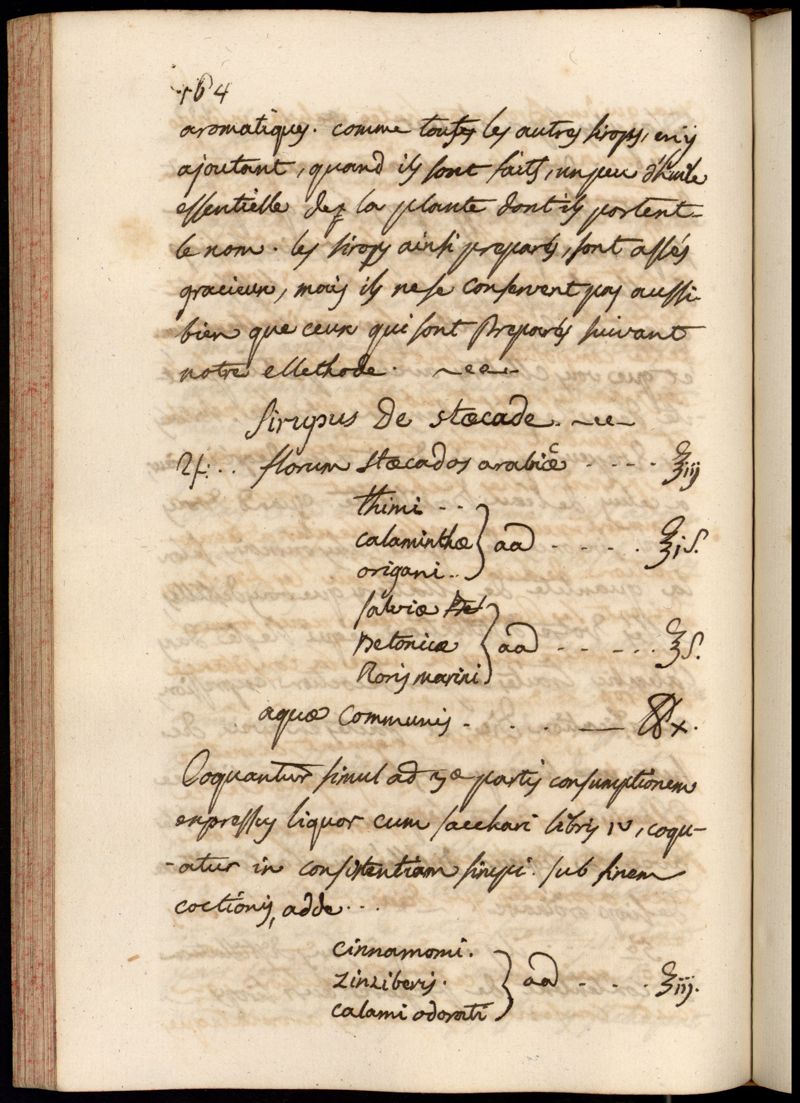 164
aromatiques. comme toutes les autres sirops, en y
ajoutant, quand ils sont faits, un peu d'huile
essentielle de la plante dont ils portent
le nom. les sirops ainsi preparés, sont assés
gracieux, mais ils ne se conservent pas aussi
bien que ceux qui sont preparés suivant
notre Methode.
Sirupus De stæcade.
℞. .. florum stæcados arabicæ - - - - ℥iij
thimi - -
calaminthæ } aa - - - - ℥j s.
origani ..
salviæ
Betonicæ } aa - - - - - ℥s.
Roris marini
aquæ communis - - - - ℔x.
Coquantur simul ad 3æ partis consumptionem
expressus liquor cum sacchari libris IV, coqu-
-atur in consistentiam sirupi. sub finem
coctionis, adde...
cinnamomi.
Zinziberis. } aa - - - - ʒiij.
calami odorati